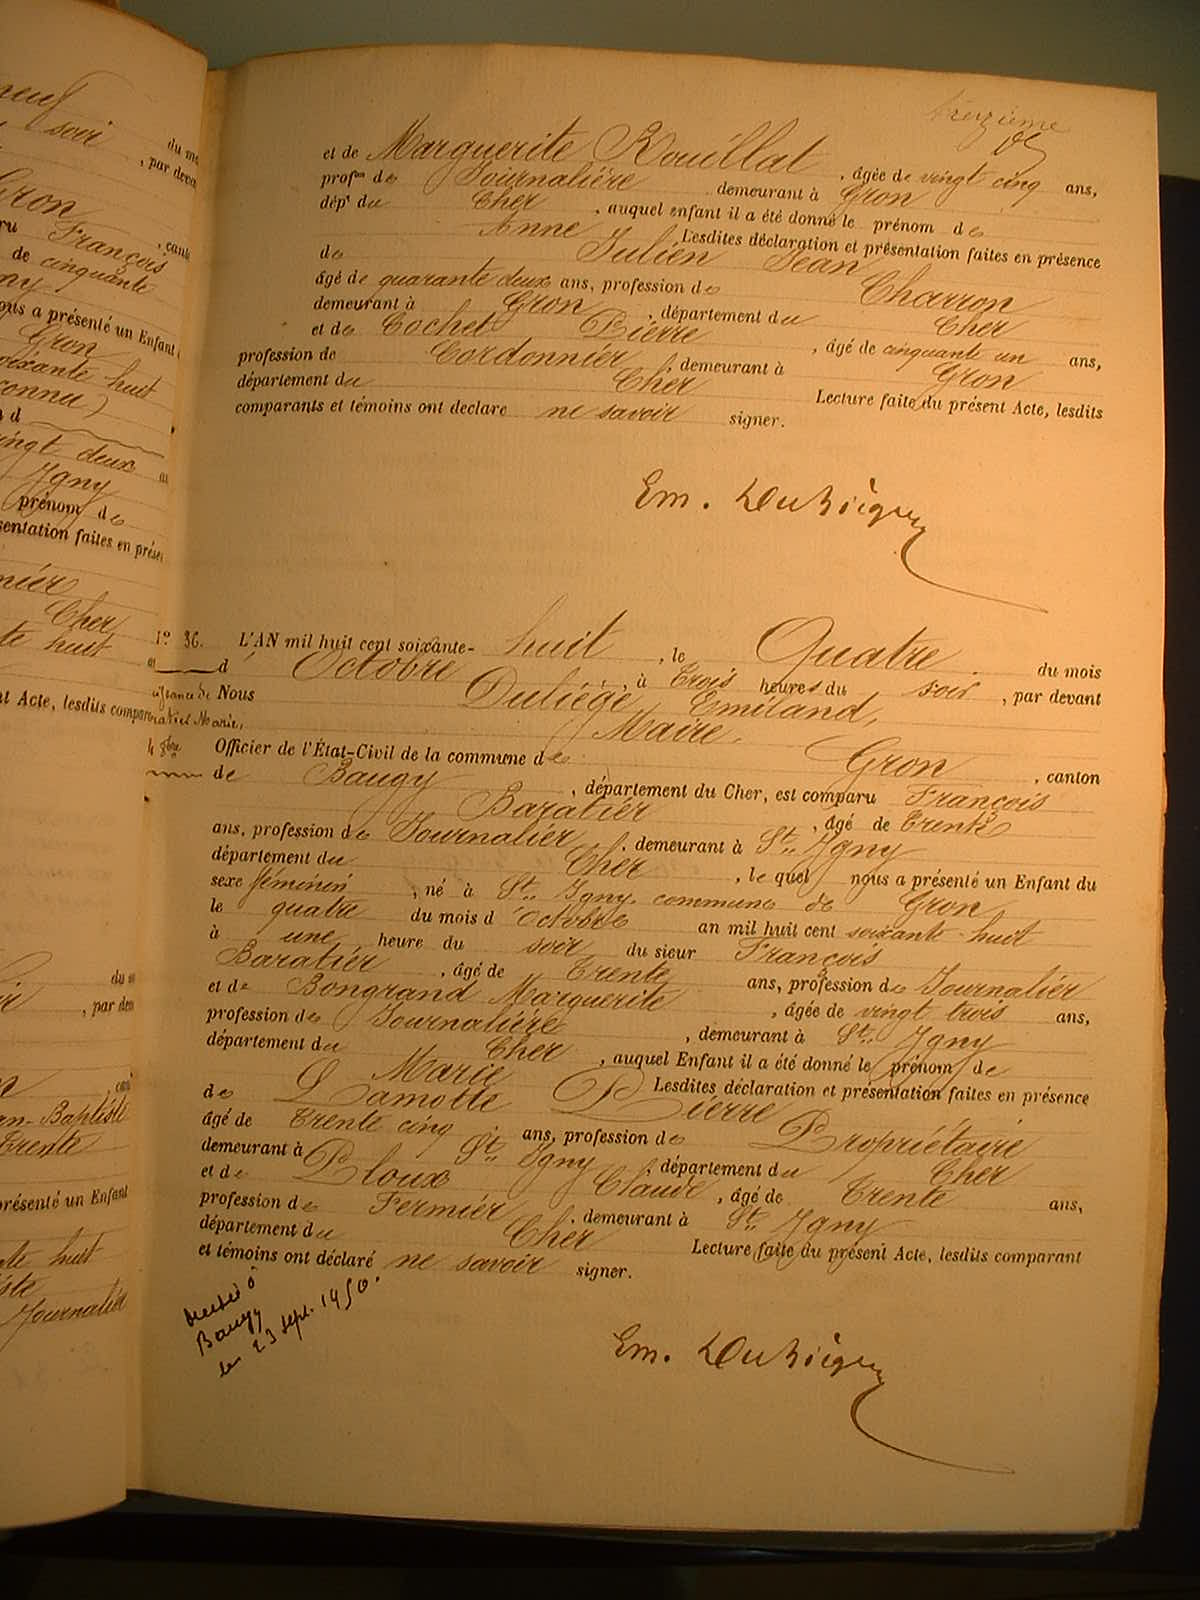 neuf
soir du m
, par devan
Gron
François , cant
de cinquante
ny
ous a présenté un Enfant
Gron
soixante huit
connu)
d
vingt deux
Igny
prénom de
sentation faites en prése
Cher
te huit
nt Acte, lesdits compar
, par dev
an-Baptiste
trente
présenté un Enfant
nte huit
iste
Journalier
treizième
et de Marguerite Rouillat , âgée de vingt cinq ans,
profon de Journalière demeurant à Gron
dépt du Cher , auquel enfant il a été donné le prénom de
Anne Lesdites déclaration et présentation faites en présence
de Julien Jean
âgé de quarante deux ans, profession de Charron
demeurant à Gron , département du Cher
et de Cochet Pierre , âgé de cinquante un ans,
profession de Cordonnier , demeurant à Gron
département du Cher Lecture faite du présent Acte, lesdits
comparants et témoins ont déclaré ne savoir signer.
Em. Duliège
No 36. L'AN mil huit cent soixante- huit , le Quatre du mois
d'Octobre , à trois heures du soir , par devant
Nous Duliège Emiland,
Maire.
Naissance de
Baratier Marie,
4 8bre
Officier de l'État-Civil de la commune de Gron , canton
de Baugy , département du Cher, est comparu François
Baratier , âgé de trente
ans, profession de Journalier , demeurant à St. Igny
département du Cher , lequel nous a présenté un Enfant du
sexe féminin , né à St. Igny, commune de Gron
le quatre du mois d'Octobre an mil huit cent soixante-huit
à une heure du soir du sieur François
Baratier , âgé de trente ans, profession de Journalier
et de Bongrand Marguerite , âgée de vingt trois ans,
profession de Journalière , demeurant à St. Igny
département du Cher , auquel Enfant il a été donné le prénom de
Marie Lesdites déclaration et présentation faites en présence
de Lamotte Pierre
âgé de trente cinq ans, profession de Propriétaire
demeurant à St. Igny , département du Cher
et de Ploux Claude , âgé de trente ans,
profession de Fermier , demeurant à St. Igny
département du Cher Lecture faite du présent Acte, lesdits comparant
et témoins ont déclaré ne savoir signer.
décédée à
Baugy
le 23 sept. 1950.
Em. Duliège